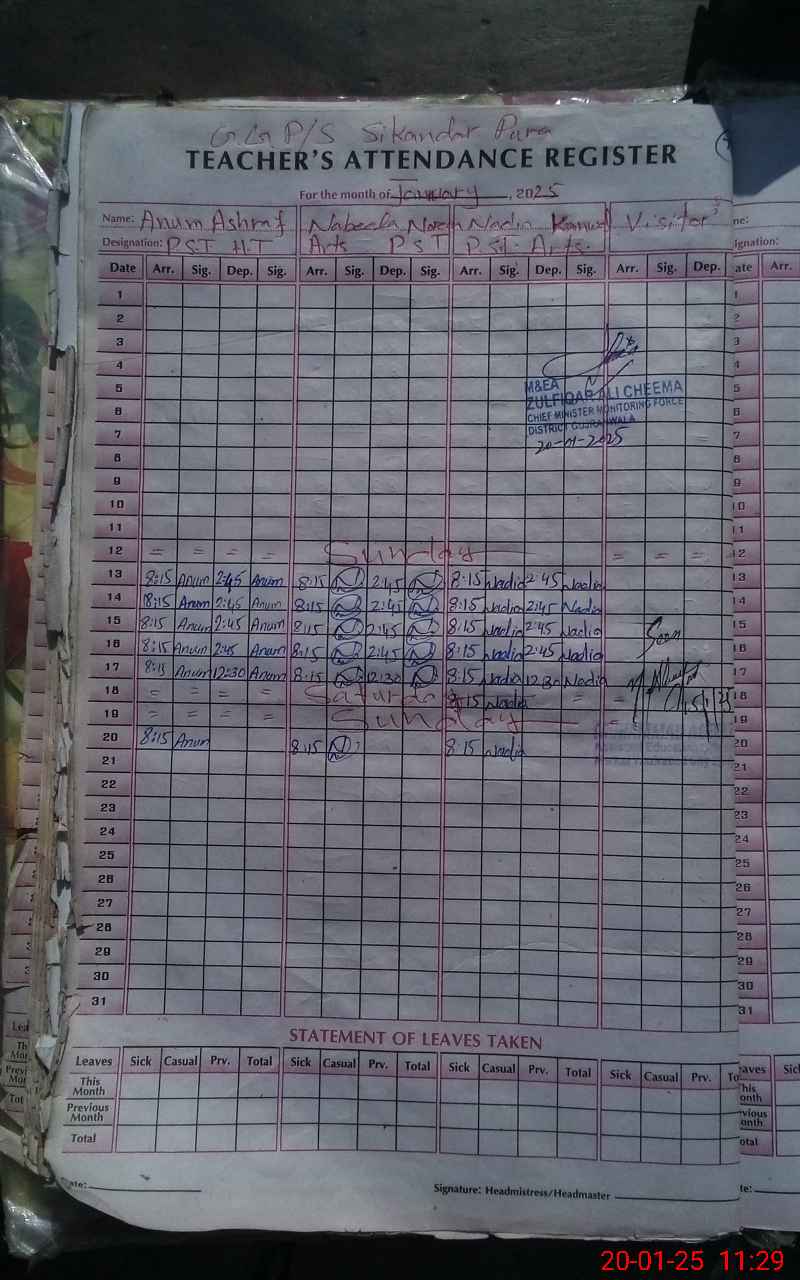 G.G P/S Sikandar Pura
TEACHER'S ATTENDANCE REGISTER
For the month of January, 2025
Name: Anum Ashraf Nabeela Nadia Kanwal Visitor ne:
Designation: PST H.T Arts PST PST Arts. ignation:
Date Arr. Sig. Dep. Sig. Arr. Sig. Dep. Sig. Arr. Sig. Dep. Sig. Arr. Sig. Dep. ate Arr.
1 1
2 2
3 3
4 4
5 M&EA 5
6 ZULFIQAR ALI CHEEMA 6
CHIEF MINISTER MONITORING FORCE
7 DISTRICT GUJRANWALA 7
20-01-2025
8 8
9 9
10 10
11 11
12 = = = = Sunday = = = 12
13 8:15 Anum 2:45 Anum 8:15 N 2:45 N 8:15 Nadia 2:45 Nadia 13
14 8:15 Anum 2:45 Anum 8:15 N 2:45 N 8:15 Nadia 2:45 Nadia 14
15 8:15 Anum 2:45 Anum 8:15 N 2:45 N 8:15 Nadia 2:45 Nadia Seen 15
16 8:15 Anum 2:45 Anum 8:15 N 2:45 N 8:15 Nadia 2:45 Nadia 16
17 8:15 Anum 12:30 Anum 8:15 N 12:30 N 8:15 Nadia 12:30 Nadia 17
18 = = = = Saturda 8:15 Nadia = = 18
19 = = = = Sunday = 19
20 8:15 Anum 8:15 N 8:15 Nadia 20
21 21
22 22
23 23
24 24
25 25
26 26
27 27
28 28
29 29
30 30
31 31
STATEMENT OF LEAVES TAKEN
Leaves Sick Casual Prv. Total Sick Casual Prv. Total Sick Casual Prv. Total Sick Casual Prv. To eaves Sic
This Month his onth
Previous Month vious onth
Total otal
ate: Signature: Headmistress/Headmaster te:
20-01-25 11:29